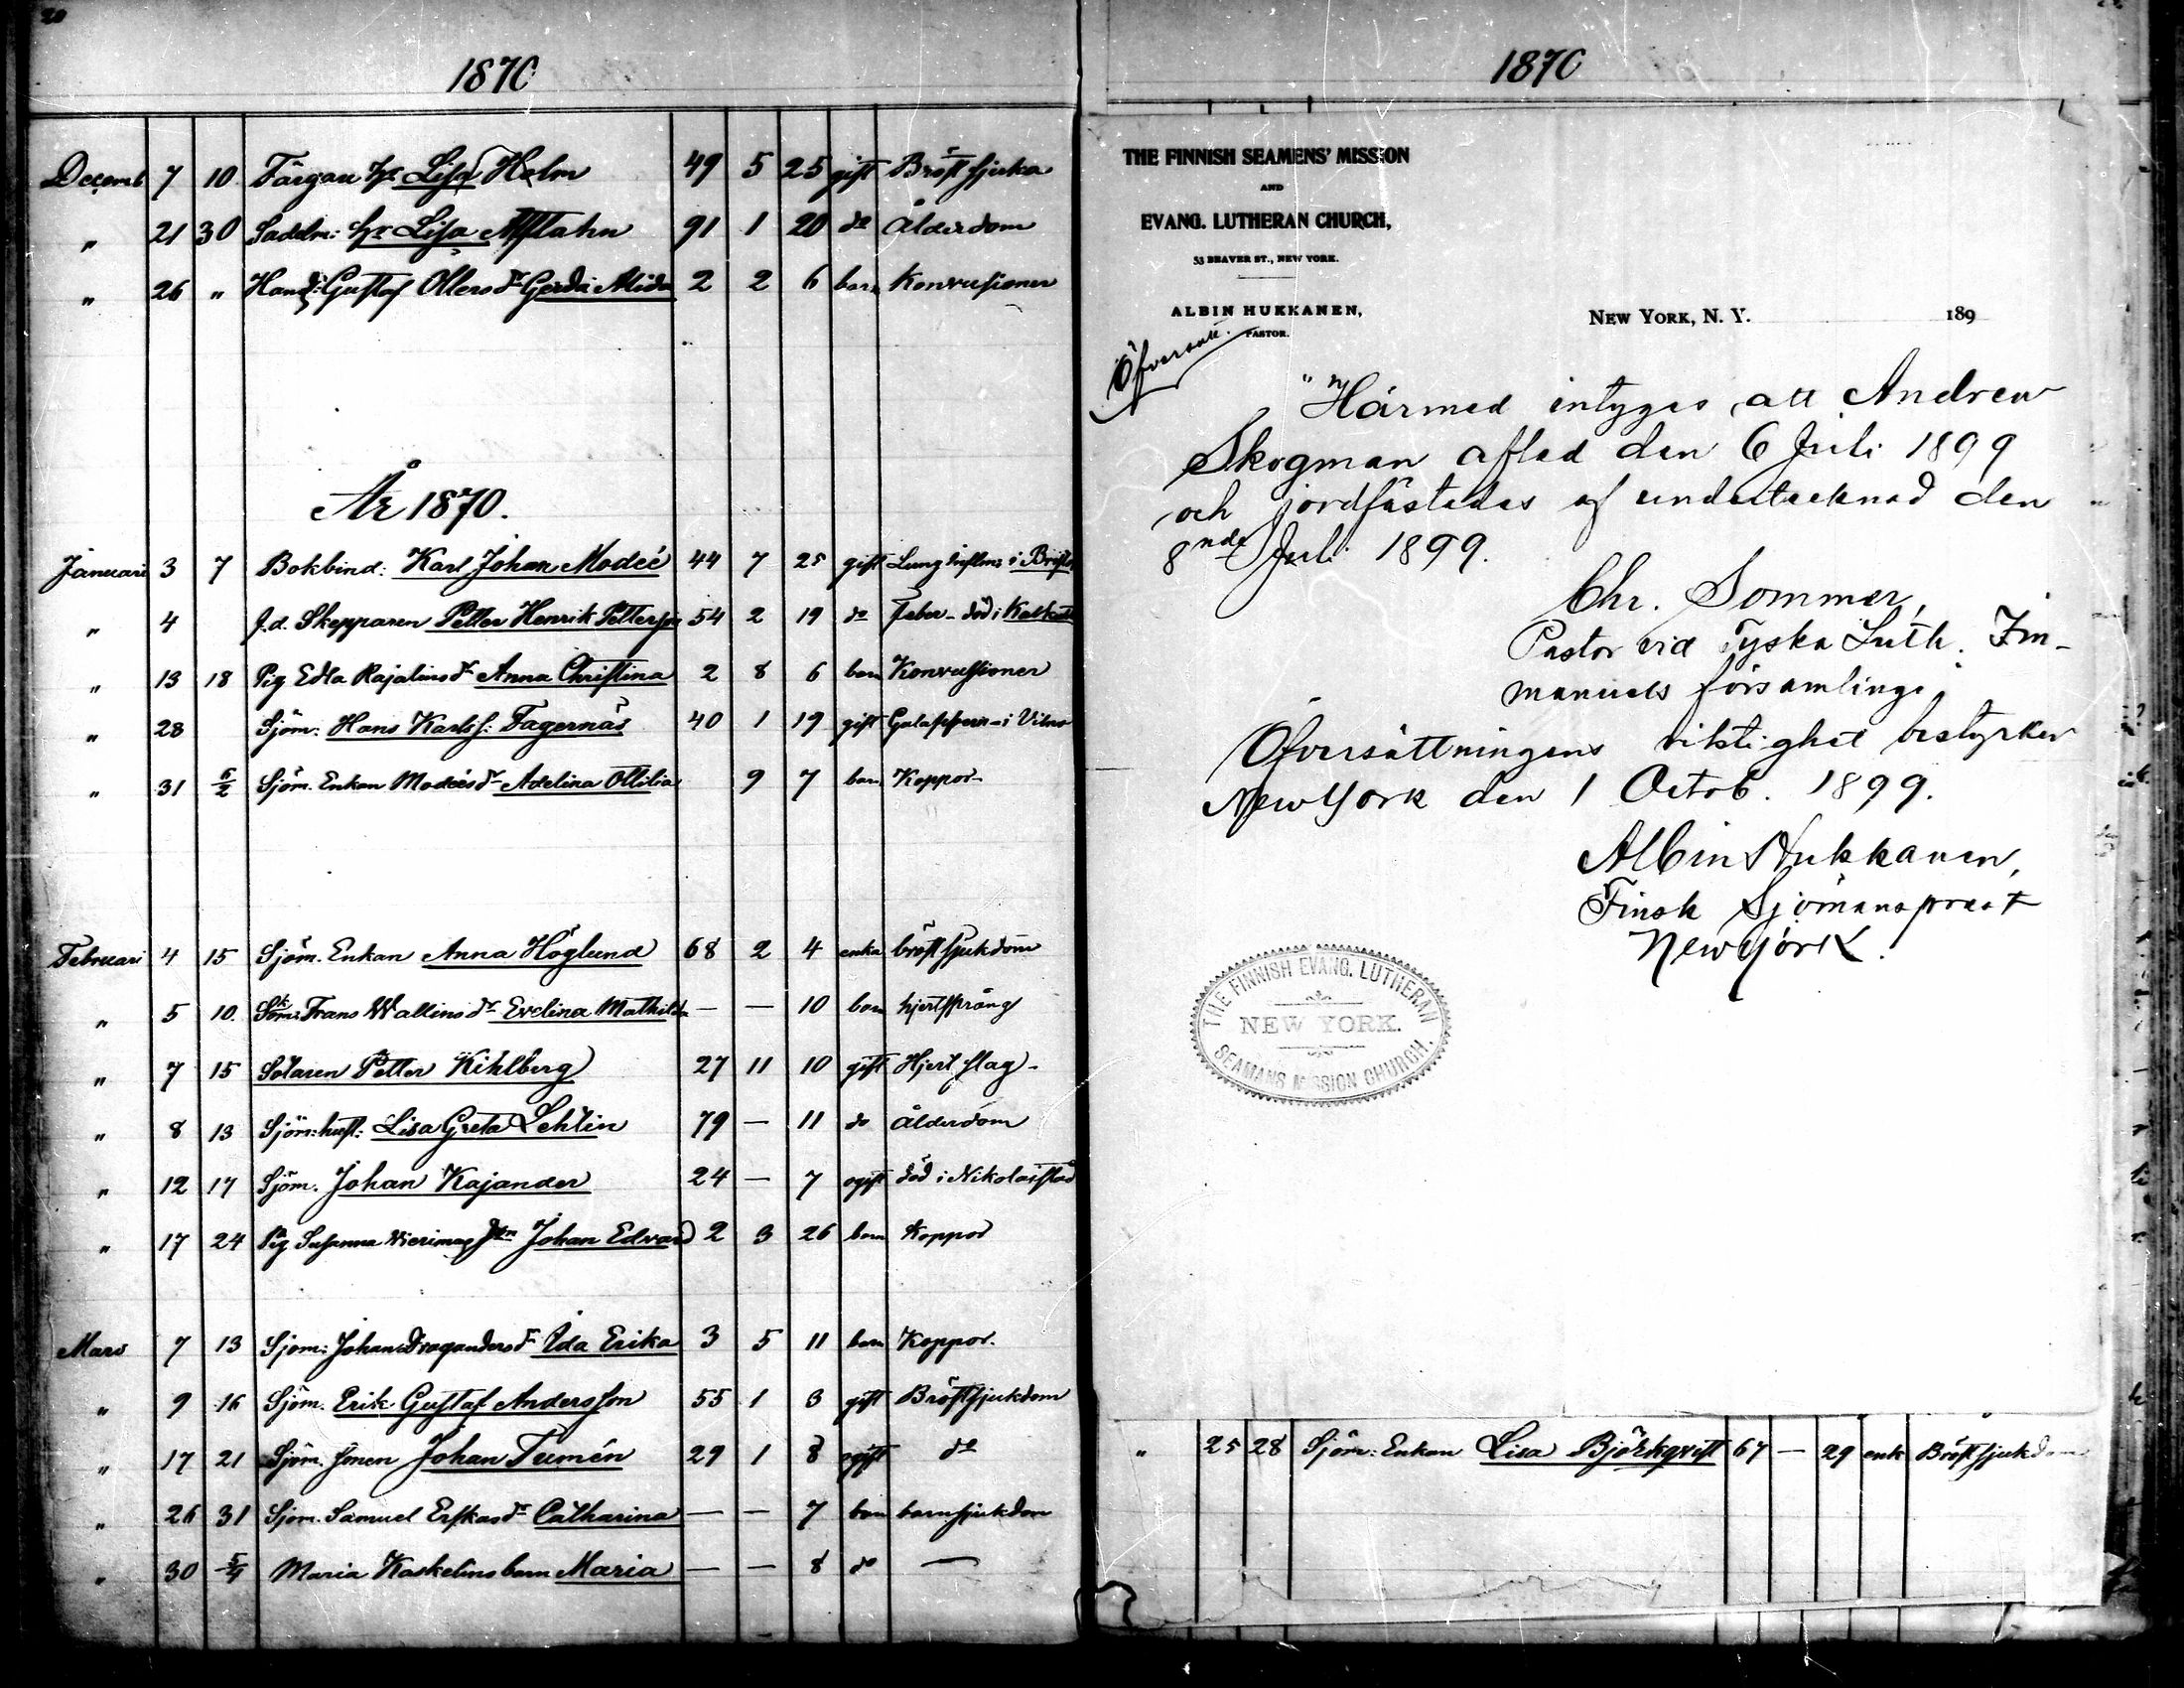 20
1870
Decemb 7 10 Färgare hr Lisa Holm 49 5 25 gift Bröstsjuka
" 21 30 Sadelm: hr Lisa Aftahn 91 1 20 do Ålderdom
" 26 " Hand: Gustaf Ollers dr Gerda Alida 2 2 6 barn Konvulsioner
År 1870.
Januari 3 7 Bokbind: Karl Johan Modeé 44 7 25 gift Lunginflm: i
" 4 f.d. Skepparen Petter Henrik Petterson 54 2 19 do Feber - död i
" 13 18 Pig Edla Rajalins dr Anna Christina 2 8 6 barn Konvulsioner
" 28 Sjöm: Hans Karlss: Fagernäs 40 1 19 gift
" 31 6/2 Sjöm. Enkan Modeés dr Adelina Ottilia 9 7 barn Koppor
Februari 4 15 Sjöm. Enkan Anna Höglund 68 2 4 enka bröstsjukdom
" 5 10. Frans Wallins dr Evelina Mathilda — — 10 barn hjertsprång
" 7 15 Sotaren Petter Kihlberg 27 11 10 gift Hjertslag -
" 8 13 Sjöm: hust: Lisa Greta Lehtin 79 — 11 do Ålderdom
" 12 17 Sjöm. Johan Kajander 24 — 7 ogift död i Nikolaistad
" 17 24 Pig Susanna Johan Edvard 2 3 26 barn Koppor
Mars 7 13 Sjöm: Johan Draganders dr Ida Erika 3 5 11 barn Koppor.
" 9 16 Sjöm. Erik Gustaf Andersson 55 1 3 gift Bröstsjukdom
" 17 21 Sjöm. sonen Johan Tumén 29 1 8 ogift do
" 26 31 Sjöm. Samuel Erskas dr Catharina — — 7 barn barnsjukdom
" 30 5/4 Maria Kaskelins barn Maria — — 8 do —
1870
THE FINNISH SEAMENS' MISSION
AND
EVANG. LUTHERAN CHURCH,
53 BEAVER ST., NEW YORK.
ALBIN HUKKANEN,
PASTOR.
NEW YORK, N. Y. 189
Öfversätt.
"Härmed intyges att Andrew
Skogman afled den 6 Juli 1899
och jordfästades af undertecknad den
8nde Juli 1899.
Chr. Sommer,
Pastor vid Tyska Luth. Im-
manuels församling."
Öfversättningens riktighet bestyrker
New York den 1 Octob. 1899.
Albin Hukkanen,
Finsk Sjömansprest
New York.
THE FINNISH EVANG. LUTHERAN
NEW YORK.
SEAMANS MISSION CHURCH.
" 25 28 Sjöm: Enkan Lisa Björkqvist 67 — 29 enk Bröstsjukdom